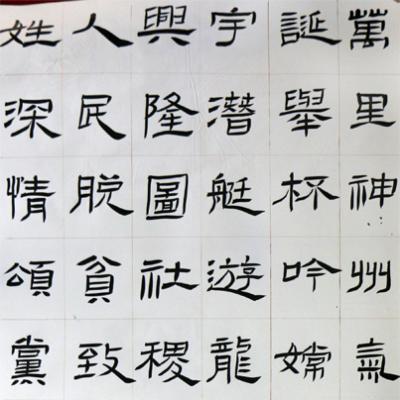 萬里神州氣
誕舉杯吟嫦
宇潛艇遊龍
興隆圖社稷
人民脫貧致
姓深情頌黨